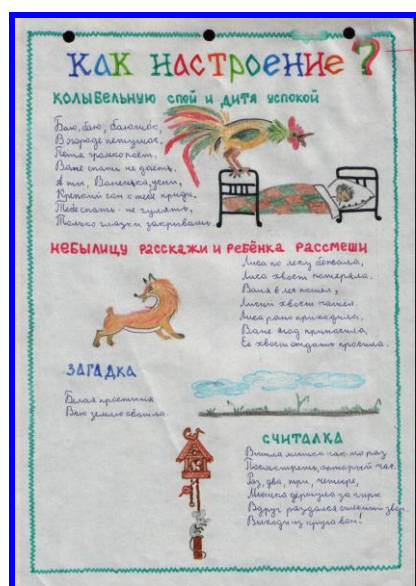 Как настроение?
Колыбельную спой и дитя успокой
Баю, баю, баюшок,
В огороде петушок.
Петя громко поёт,
Ване спать не даёт.
А ты, Ванечка, усни,
Крепкий сон к тебе приди.
Тебе спать - не гулять,
Только глазки закрывать.
Небылицу расскажи и ребёнка рассмеши
Лиса по лесу бежала,
Лиса хвост потеряла.
Ваня в лес пошёл,
Лисий хвост нашёл.
Лиса рано приходила,
Ване ягод приносила,
Её хвост отдать просила.
Загадка
Белая простыня
Всю землю
Считалка
Вышла мышка как-то раз
Посмотреть, который час.
Раз, два, три, четыре,
Мышка дёрнула за гири.
Вдруг раздался звон.
Выходи из круга вон!